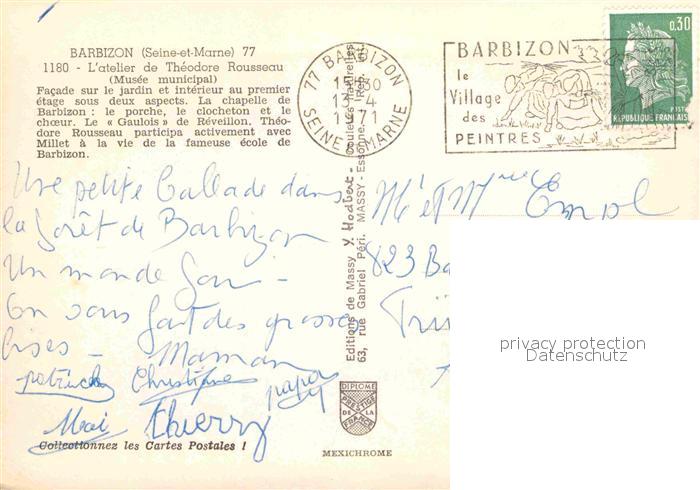 BARBIZON (Seine-et-Marne) 77
1180 - L'atelier de Théodore Rousseau
(Musée municipal)
Façade sur le jardin et intérieur au premier
étage sous deux aspects. La chapelle de
Barbizon : le porche, le clocheton et le
chœur. Le « Gaulois » de Réveillon. Théo-
dore Rousseau participa activement avec
Millet à la vie de la fameuse école de
Barbizon.
77 BARBIZON
13-4
1971
SEINE & MARNE
BARBIZON
le
Village
des
PEINTRES
0.30
POSTES
REPUBLIQUE FRANCAISE
Une petite ballade dans
la forêt de Barbizon
Un monde fou -
On vous fait des grosses
bises - Maman
Christiane
papa
Thierry
Collectionnez les Cartes Postales !
Editions de Massy
63, rue Gabriel Péri. MASSY - Essonne.
Couleurs naturelles
M et Mme
823
DIPLOME
PRESTIGE
DE LA
FRANCE
MEXICHROME
privacy protection
Datenschutz